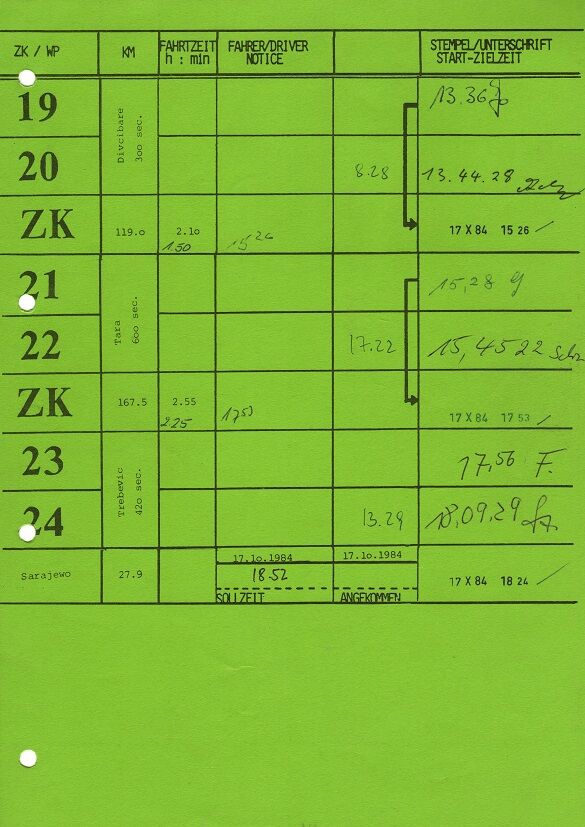 ZK / WP KM FAHRTZEIT h : min FAHRER/DRIVER NOTICE STEMPEL/UNTERSCHRIFT START-ZIELZEIT
19 Divcibare 300 sec. 13.36
20 8.28 13.44.28
ZK 119.0 2.10 1.50 15 26 17 X 84 15 26
21 Tara 600 sec. 15,28
22 17.22 15,45 22
ZK 167.5 2.55 2.25 17 53 17 X 84 17 53
23 Trebevic 420 sec. 17,56 F.
24 13.29 18,09,29
Sarajewo 27.9 17.10.1984 18.52 SOLLZEIT 17.10.1984 ANGEKOMMEN 17 X 84 18 24